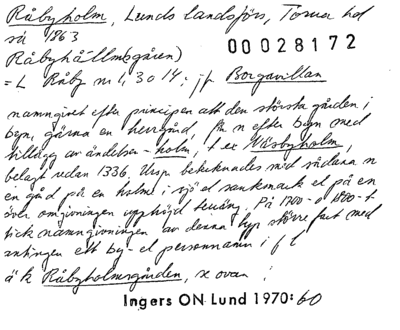 Råbyholm, Lunds landsförs, Torna hd
så 1863
Råbyhållms(gåren)
00028172
= L Råby nr 1, 3 o 14; jfr Borgavillan
namngivet efter principen att den största gården i
byn, gärna en herrgård, får n efter byn med
tillägg av ändelsen -holm, t ex Wäsbyholm,
belagt redan 1336. Ursp betecknades med sådana n
en gård på en holme i sjö el sankmark el på en
över omgivningen upphöjd terräng. På 1700- o 1800-t
fick namngivningen av denna typ större fart med
antingen ett by- el personnamn i f l
ä k Råbyholmsgården, se ovan
Ingers ON Lund 1970: 60